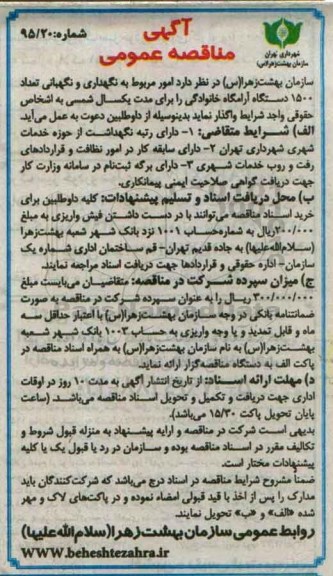 شهرداری تهران
سازمان بهشت‌زهرا(س)
آگهی
مناقصه عمومی
شماره: ۹۵/۲۰
سازمان بهشت‌زهرا(س) در نظر دارد امور مربوط به نگهداری و نگهبانی تعداد
۱۵۰۰ دستگاه آرامگاه خانوادگی را برای مدت یکسال شمسی به اشخاص
حقوقی واجد شرایط واگذار نماید بدینوسیله از داوطلبین دعوت به عمل می‌آید.
الف) شرایط متقاضی: ۱- دارای رتبه نگهداشت از حوزه خدمات
شهری شهرداری تهران ۲- دارای سابقه کار در امور نظافت و قراردادهای
رفت و روب خدمات شهری ۳- دارای برگه ثبت‌نام در سامانه وزارت کار
جهت دریافت گواهی صلاحیت ایمنی پیمانکاری.
ب) محل دریافت اسناد و تسلیم پیشنهادات: کلیه داوطلبین برای
خرید اسناد مناقصه می‌توانند با در دست داشتن فیش واریزی به مبلغ
۲۰۰/۰۰۰ریال به شماره‌حساب ۱۰۰۱ نزد بانک شهر شعبه بهشت‌زهرا
(سلام‌الله‌علیها) به جاده قدیم تهران- قم ساختمان اداری شماره یک
سازمان- اداره حقوقی و قراردادها جهت دریافت اسناد مراجعه نمایند.
ج) میزان سپرده شرکت در مناقصه: متقاضیان می‌بایست مبلغ
۳۰۰/۰۰۰/۰۰۰ ریال را به عنوان سپرده شرکت در مناقصه به صورت
ضمانتنامه بانکی در وجه سازمان بهشت‌زهرا(س) با اعتبار حداقل سه
ماه و قابل تمدید و یا وجه واریزی به حساب ۱۰۰۳ بانک شهر شعبه
بهشت‌زهرا(س) به نام سازمان بهشت‌زهرا(س) به همراه اسناد مناقصه در
پاکت الف به دستگاه مناقصه‌گزار ارائه نمایند.
د) مهلت ارائه اسناد: از تاریخ انتشار آگهی به مدت ۱۰ روز در اوقات
اداری جهت دریافت و تکمیل و تحویل اسناد مناقصه می‌باشد. (ساعت
پایان تحویل پاکت ۱۵/۳۰ می‌باشد).
بدیهی است شرکت در مناقصه و ارایه پیشنهاد به منزله قبول شروط و
تکالیف مقرر در اسناد مناقصه بوده و سازمان در رد یا قبول یک یا کلیه
پیشنهادات مختار است.
ضمناً مشروح شرایط مناقصه در اسناد درج می‌باشد که شرکت‌کنندگان باید
مدارک را پس از اخذ با قید قبولی امضاء نموده و در پاکت‌های لاک و مهر
شده «الف» و «ب» تحویل نمایند.
روابط عمومی سازمان بهشت زهرا (سلام‌الله‌علیها)
WWW.beheshtezahra.ir